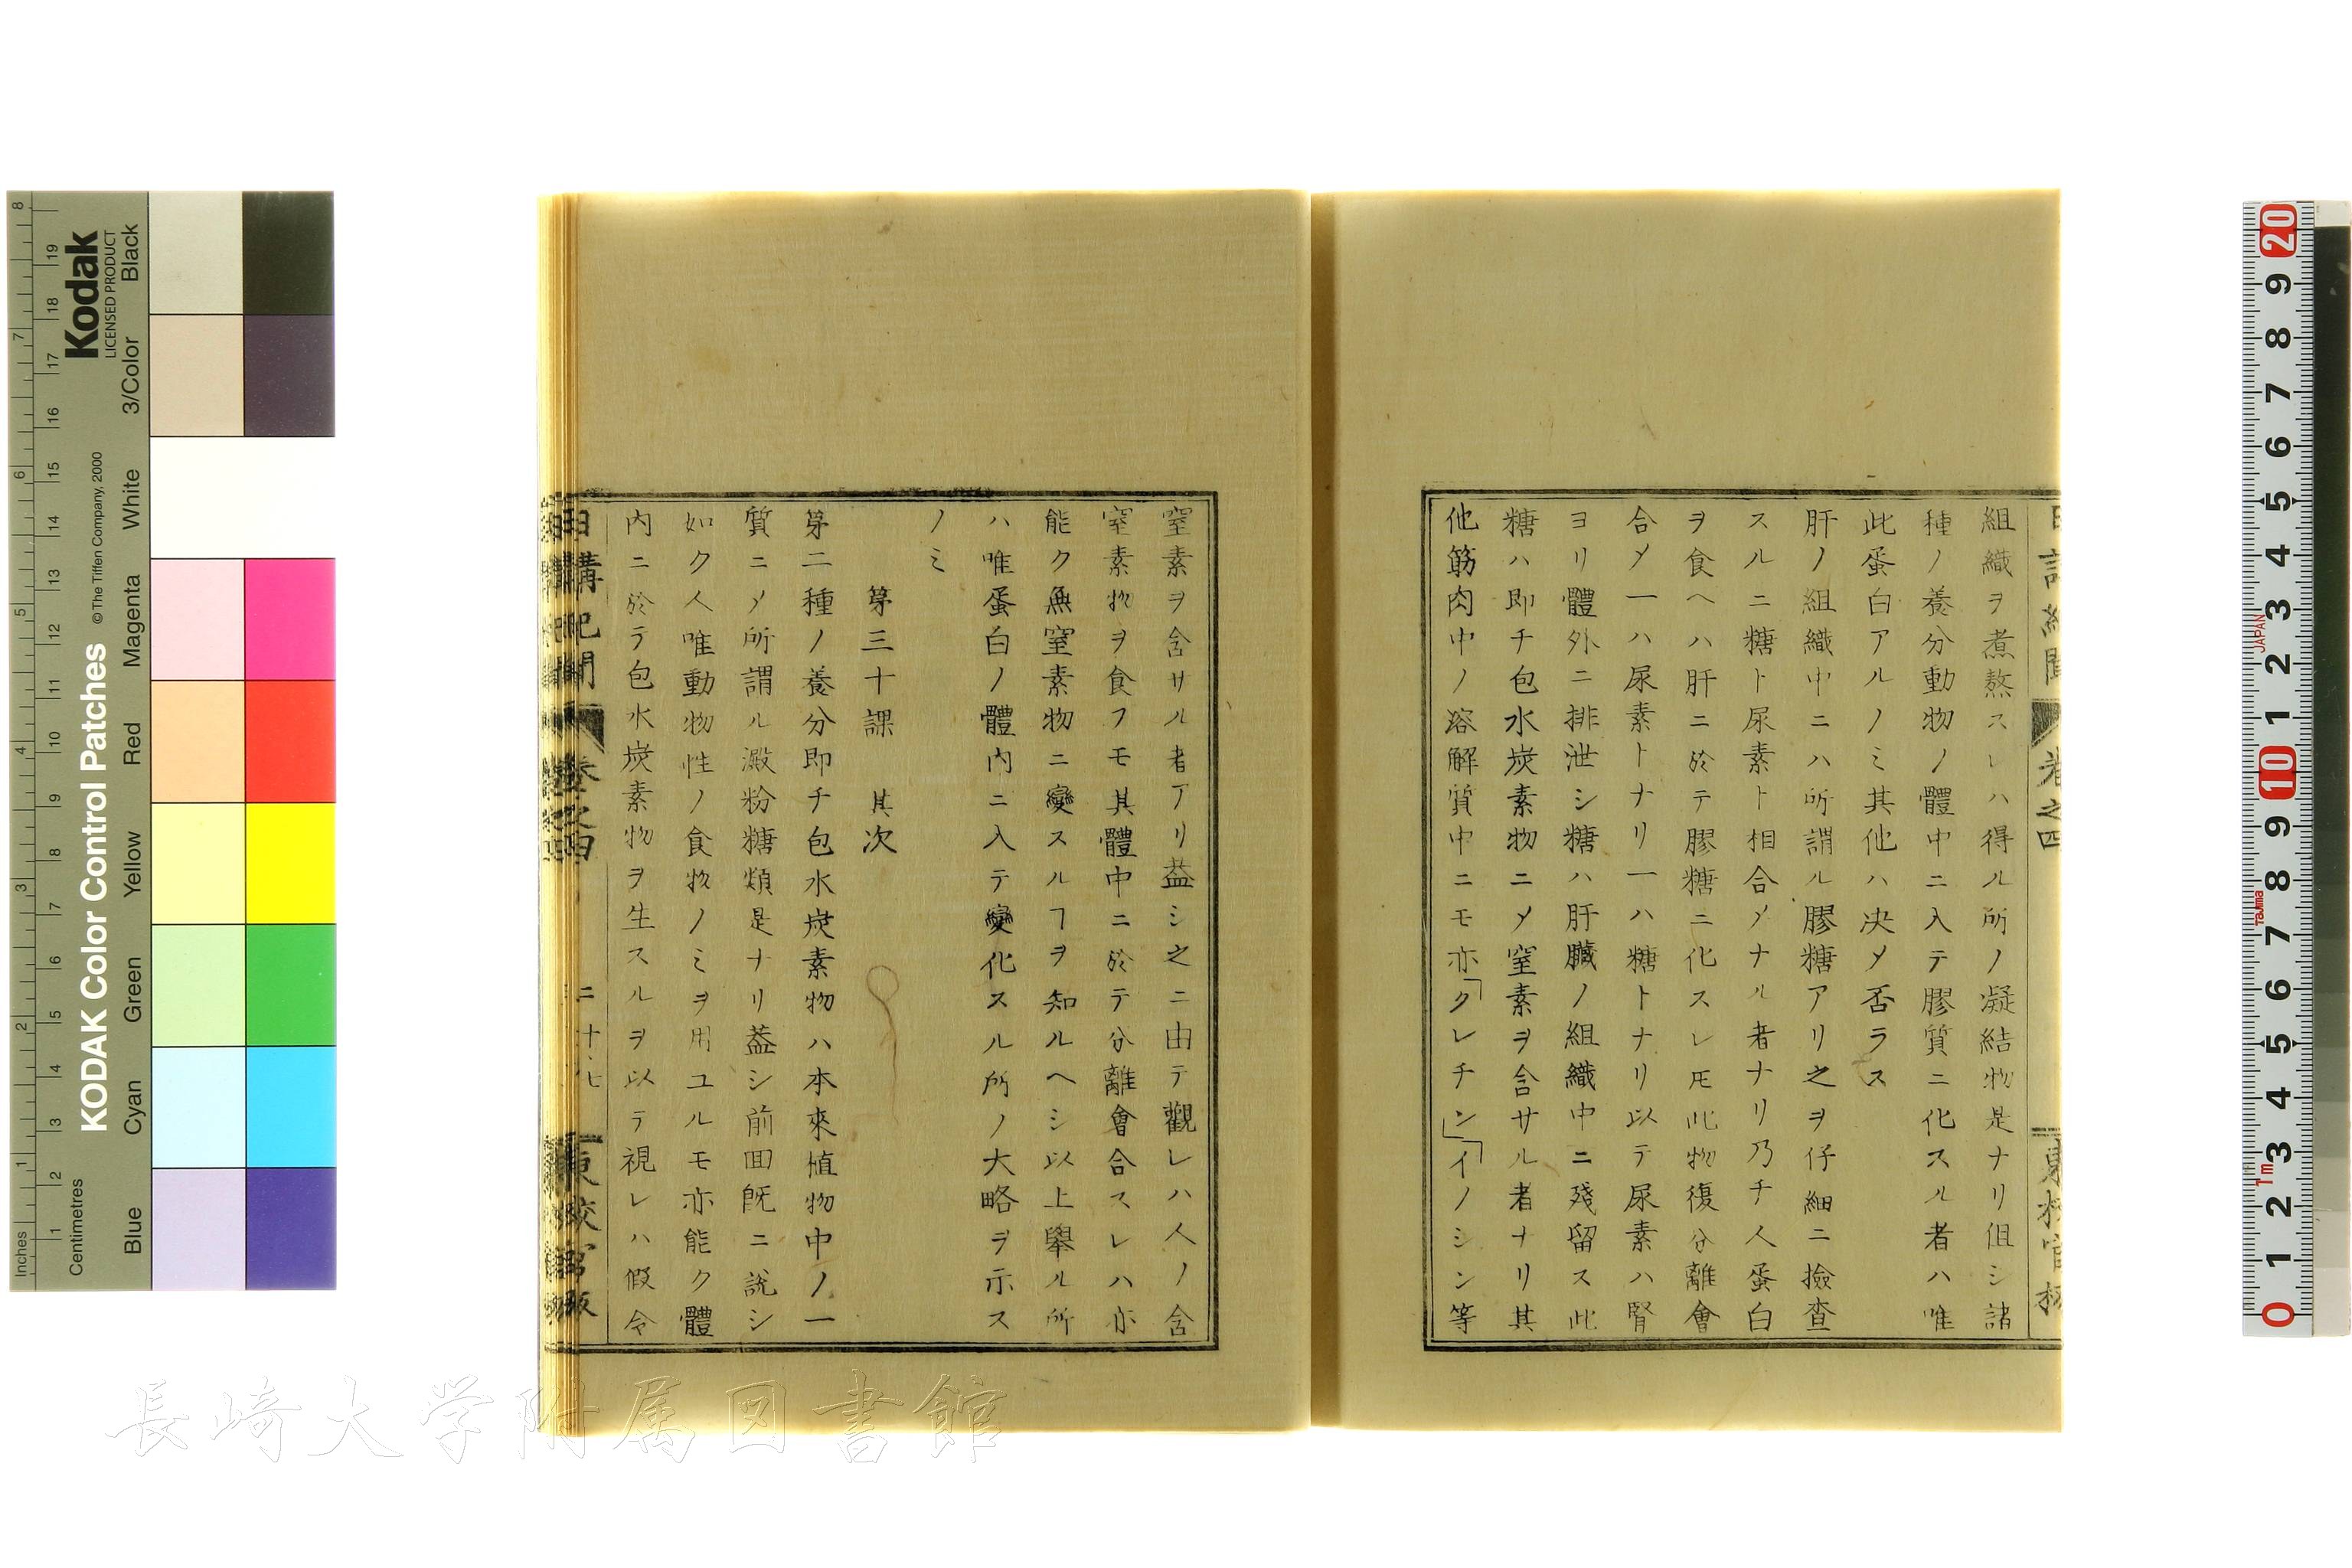 組織ヲ煮熬スレハ得ル所ノ凝結物是ナリ伹シ諸
種ノ養分動物ノ體中ニ入テ膠質ニ化スル者ハ唯
此蛋白アルノミ其他ハ决メ否ラス
肝ノ組織中ニハ所謂ル膠糖アリ之ヲ仔細ニ撿査
スルニ糖ト尿素ト相合メナル者ナリ乃チ人蛋白
ヲ食ヘハ肝ニ於テ膠糖ニ化スレ𪜈此物復分離會
合メ一ハ尿素トナリ一ハ糖トナリ以テ尿素ハ腎
ヨリ體外ニ排泄シ糖ハ肝臓ノ組織中ニ殘留ス此
糖ハ即チ包水炭素物ニメ窒素ヲ含サル者ナリ其
他筋肉中ノ溶解質中ニモ亦「クレチン」「イノシン等
卷之四
窒素ヲ含サル者アリ葢シ之ニ由テ觀レハ人ノ含
窒素物ヲ食フモ其體中ニ於テ分離會合スレハ亦
能ク無窒素物ニ變スルヿヲ知ルヘシ以上擧ル所
ハ唯蛋白ノ體内ニ入テ變化スル所ノ大略ヲ示ス
ノミ
第三十課 其次
第二種ノ養分即チ包水炭素物ハ本來植物中ノ一
質ニメ所謂ル澱粉糖類是ナリ葢シ前囬既ニ説シ
如ク人唯動物性ノ食物ノミヲ用ユルモ亦能ク體
内ニ於テ包水炭素物ヲ生スルヲ以テ視レハ假令
日講記聞 卷之四 二十七 東校官版
長崎大学附属図書館
KODAK Color Control Patches
© The Tiffen Company, 2000
Kodak
LICENSED PRODUCT
Inches
Centimetres
Blue Cyan Green Yellow Red Magenta White 3/Color Black
JAPAN
Tajima
1m